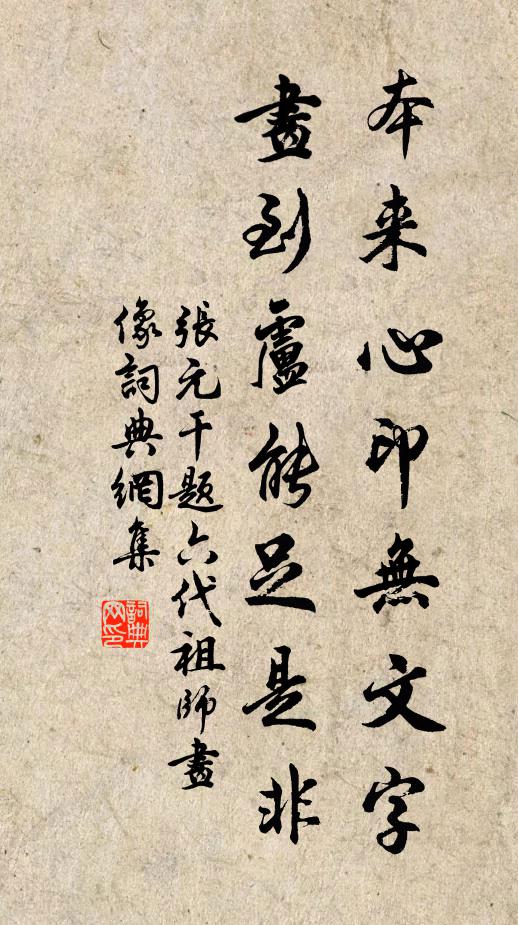 本来心印無文字
畫到盧能足是非
張元干題六代祖師畫
像詞典網集
詞典網印